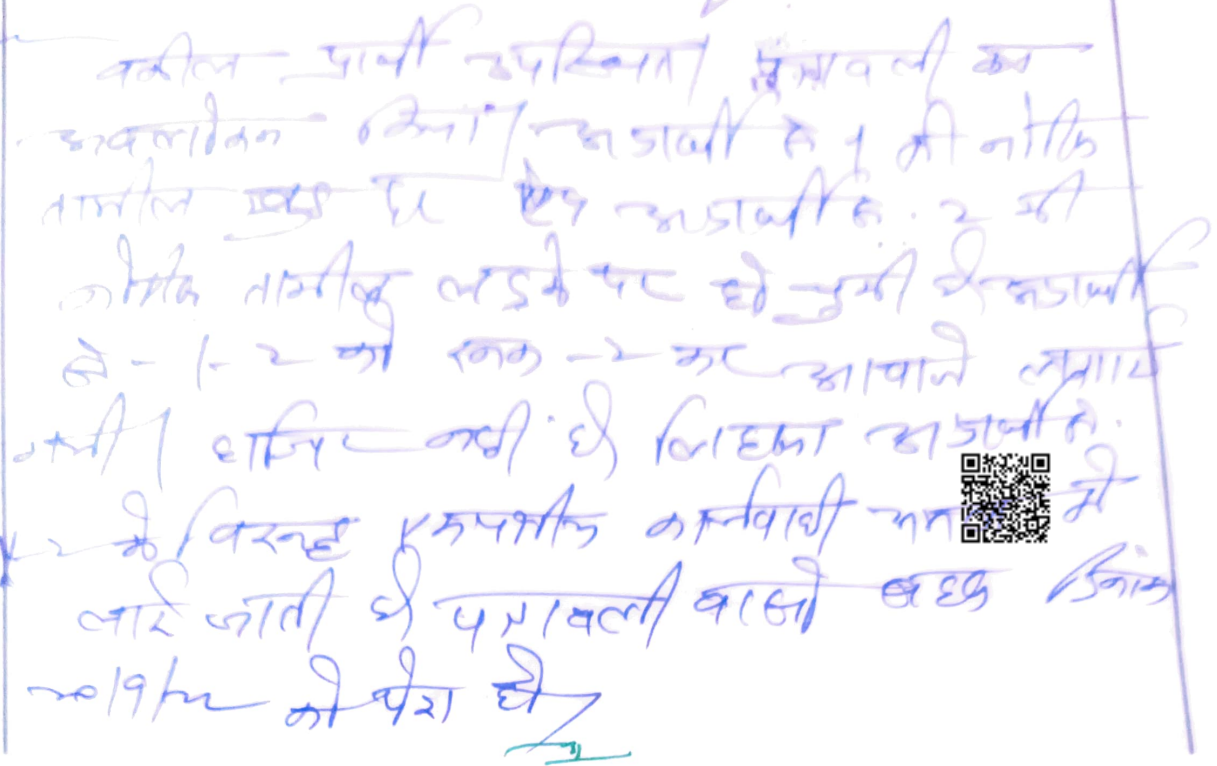 वकील प्रार्थी उपस्थित। पत्रावली का
अवलोकन किया। अप्रार्थी सं 1 की नोटिस
तामील हो अप्रार्थी सं. 2 की
नोटिस तामील लड़के पर हो चुकी है। अप्रार्थी
सं - 1 - 2 को रूबरू - 2 कर आवाजे लगायी
गयी। हाजिर नहीं है। लिहाजा अप्रार्थी सं.
1 - 2 के विरुद्ध एकपक्षीय कार्यवाही में
लाई जाती है। पत्रावली वास्ते बहस दिनांक
20/9/22 को पेश हो